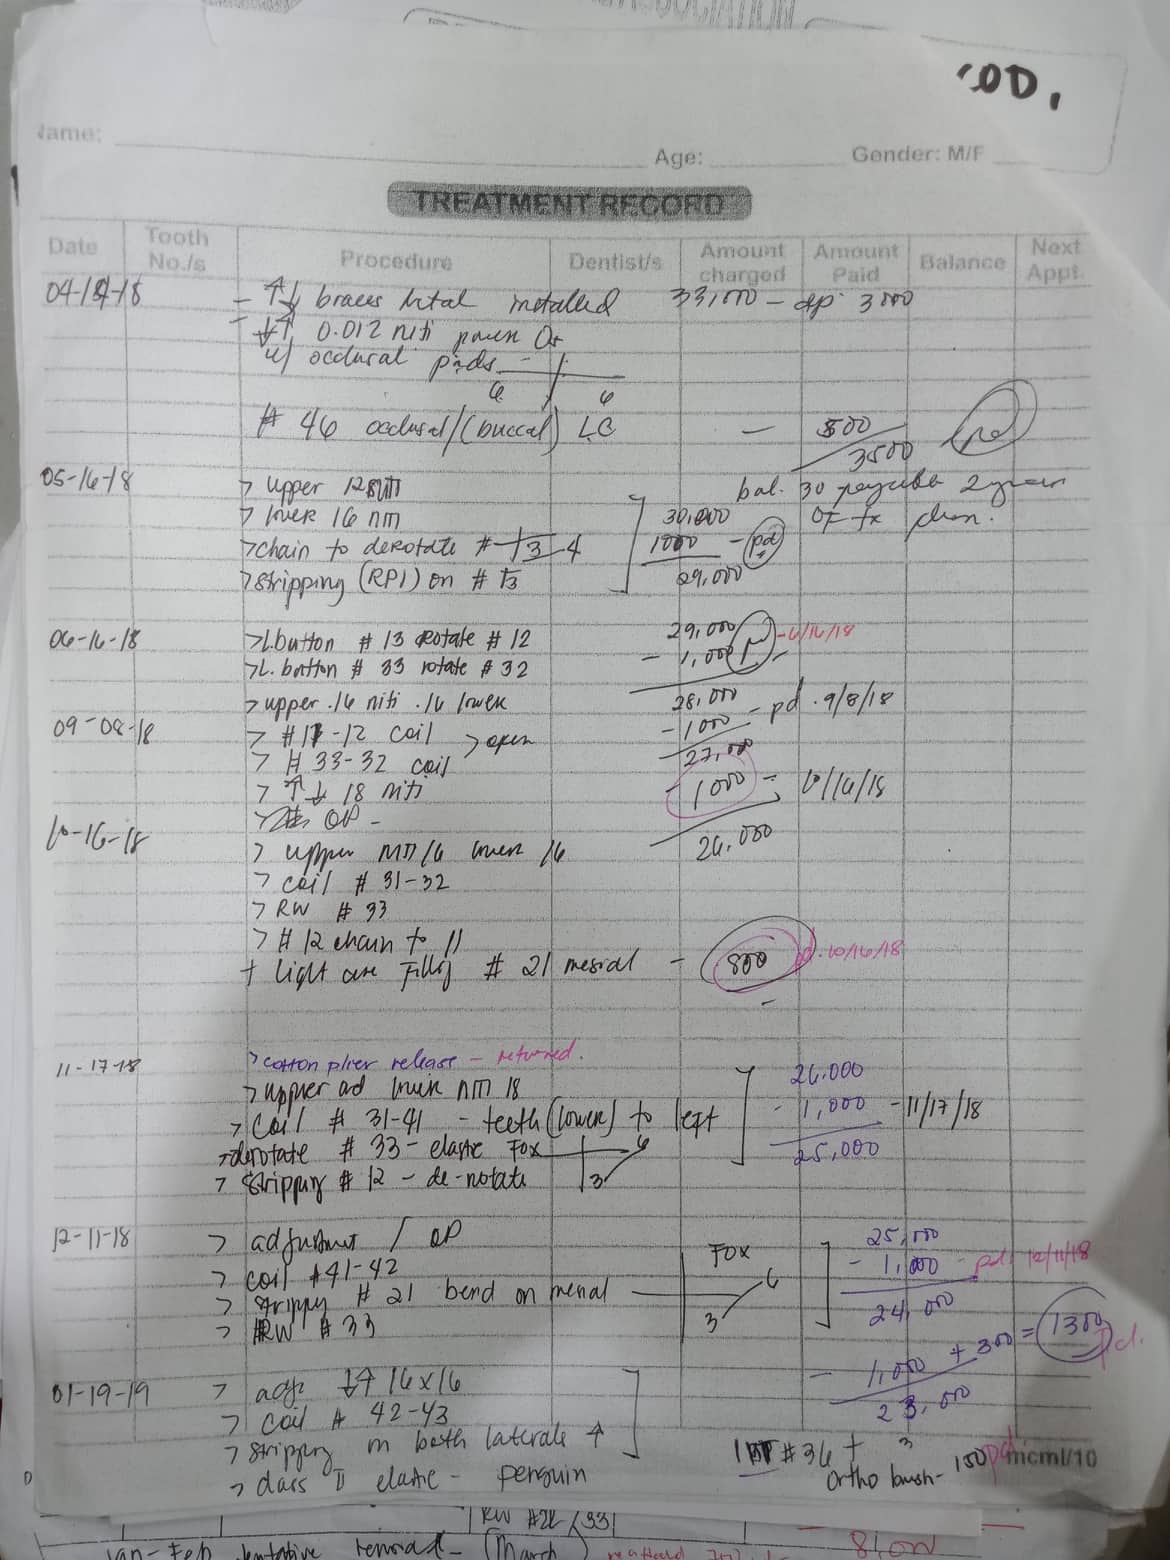 ASSOCIATION
Name:
Age:
Gender: M/F
TREATMENT RECORD
Date
Tooth No./s
Procedure
Dentist/s
Amount charged
Amount Paid
Balance
Next Appt.
04-18 - ↑↓ braces installed 33,000 - dp 3000
↓↑ 0.012 niti
w/ occlusal pads -
6 6
# 46 occlusal/(buccal) LC - 500
3500 pd
05-16-18 > upper 12 niti bal. 30 payable 2 years
> lower 16 nm 30,000 of tx plan.
> chain to derotate # 3-4 1000 - pd
> stripping (RPI) on # 3 29,000
06-16-18 > L.button # 13 rotate # 12 29,000 - 6/16/18
> L. button # 33 rotate # 32 - 1,000 -
> upper .16 niti .16 lower 28,000
09-08-18 > #11-12 coil > open - 1000 - pd. 9/8/18
> # 33-32 coil 27,000
> ↑↓ 18 niti - 1000 - 10/16/18
OP -
10-16-18 26,000
> upper niti 16 lower 16
> coil # 31-32
> RW # 33
> # 12 chain to 11
+ light cure filling # 21 mesial - 800 pd. 10/16/18
-
11-17-18 > cotton plier release - returned.
> upper ad lower niti 18 26,000
> coil # 31-41 - teeth (lower) to left - 1,000 - 11/17/18
> derotate # 33 - elastic Fox 6 25,000
> stripping # 12 - de-rotate 3
12-11-18 > adjustment / OP 25,000
> coil #41-42 Fox 6 - 1,000 - pd. 12/11/18
> stripping # 21 bend on mesial 24,000
> RW # 33 3
- 1,000 + 300 = 1300 pd.
01-19-19 > adj. ↓↑ 16x16 23,000
> coil # 42-43
> stripping on both laterals
> class II elastic - penguin
#36 +
Ortho brush - 150 pd
mcml/10
RW #22 33
Jan-Feb tentative removal - (March)